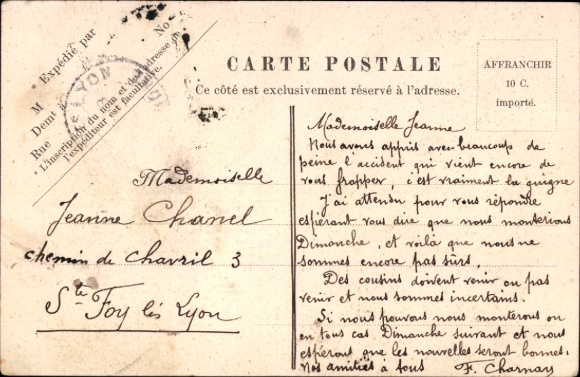 M Expédié par
No
Demt à
Rue
L'inscription du nom et de l'adresse de
l'expéditeur est facultative.
LYON
CARTE POSTALE
Ce côté est exclusivement réservé à l'adresse.
AFFRANCHIR
10 C.
importé.
Mademoiselle
Jeanne Chanel
chemin de Chavril 3
Ste Foy lès Lyon
Mademoiselle Jeanne
Nous avons appris avec beaucoup de
peine l'accident qui vient encore de
vous frapper, c'est vraiment la guigne
J'ai attendu pour vous répondre
espérant vous dire que nous monterions
Dimanche, et voilà que nous ne
sommes encore pas sûrs.
Des cousins doivent venir ou pas
venir et nous sommes incertains.
Si nous pouvons nous monterons ou
en tous cas Dimanche suivant et nous
espérons que les nouvelles seront bonnes.
Nos amitiés à tous F. Charnay